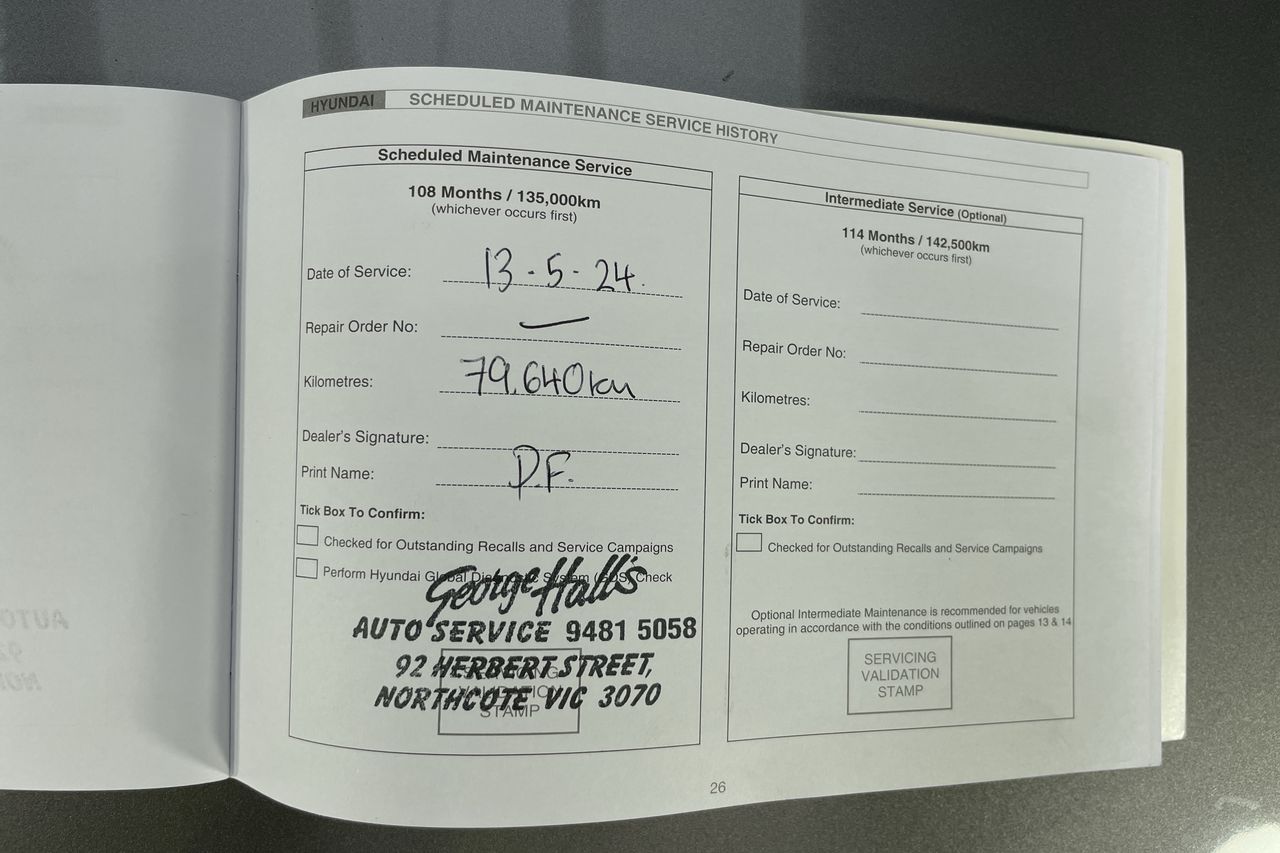 HYUNDAI SCHEDULED MAINTENANCE SERVICE HISTORY
Scheduled Maintenance Service
108 Months / 135,000km
(whichever occurs first)
Date of Service: 13-5-24.
Repair Order No: —
Kilometres: 79.640km
Dealer's Signature:
Print Name: D.F.
Tick Box To Confirm:
Checked for Outstanding Recalls and Service Campaigns
Perform Hyundai Global Diagnostic System (GDS) Check
George Hall's
AUTO SERVICE 9481 5058
92 HERBERT STREET,
NORTHCOTE VIC 3070
SERVICING
VALIDATION
STAMP
Intermediate Service (Optional)
114 Months / 142,500km
(whichever occurs first)
Date of Service:
Repair Order No:
Kilometres:
Dealer's Signature:
Print Name:
Tick Box To Confirm:
Checked for Outstanding Recalls and Service Campaigns
Optional Intermediate Maintenance is recommended for vehicles
operating in accordance with the conditions outlined on pages 13 & 14
SERVICING
VALIDATION
STAMP
26